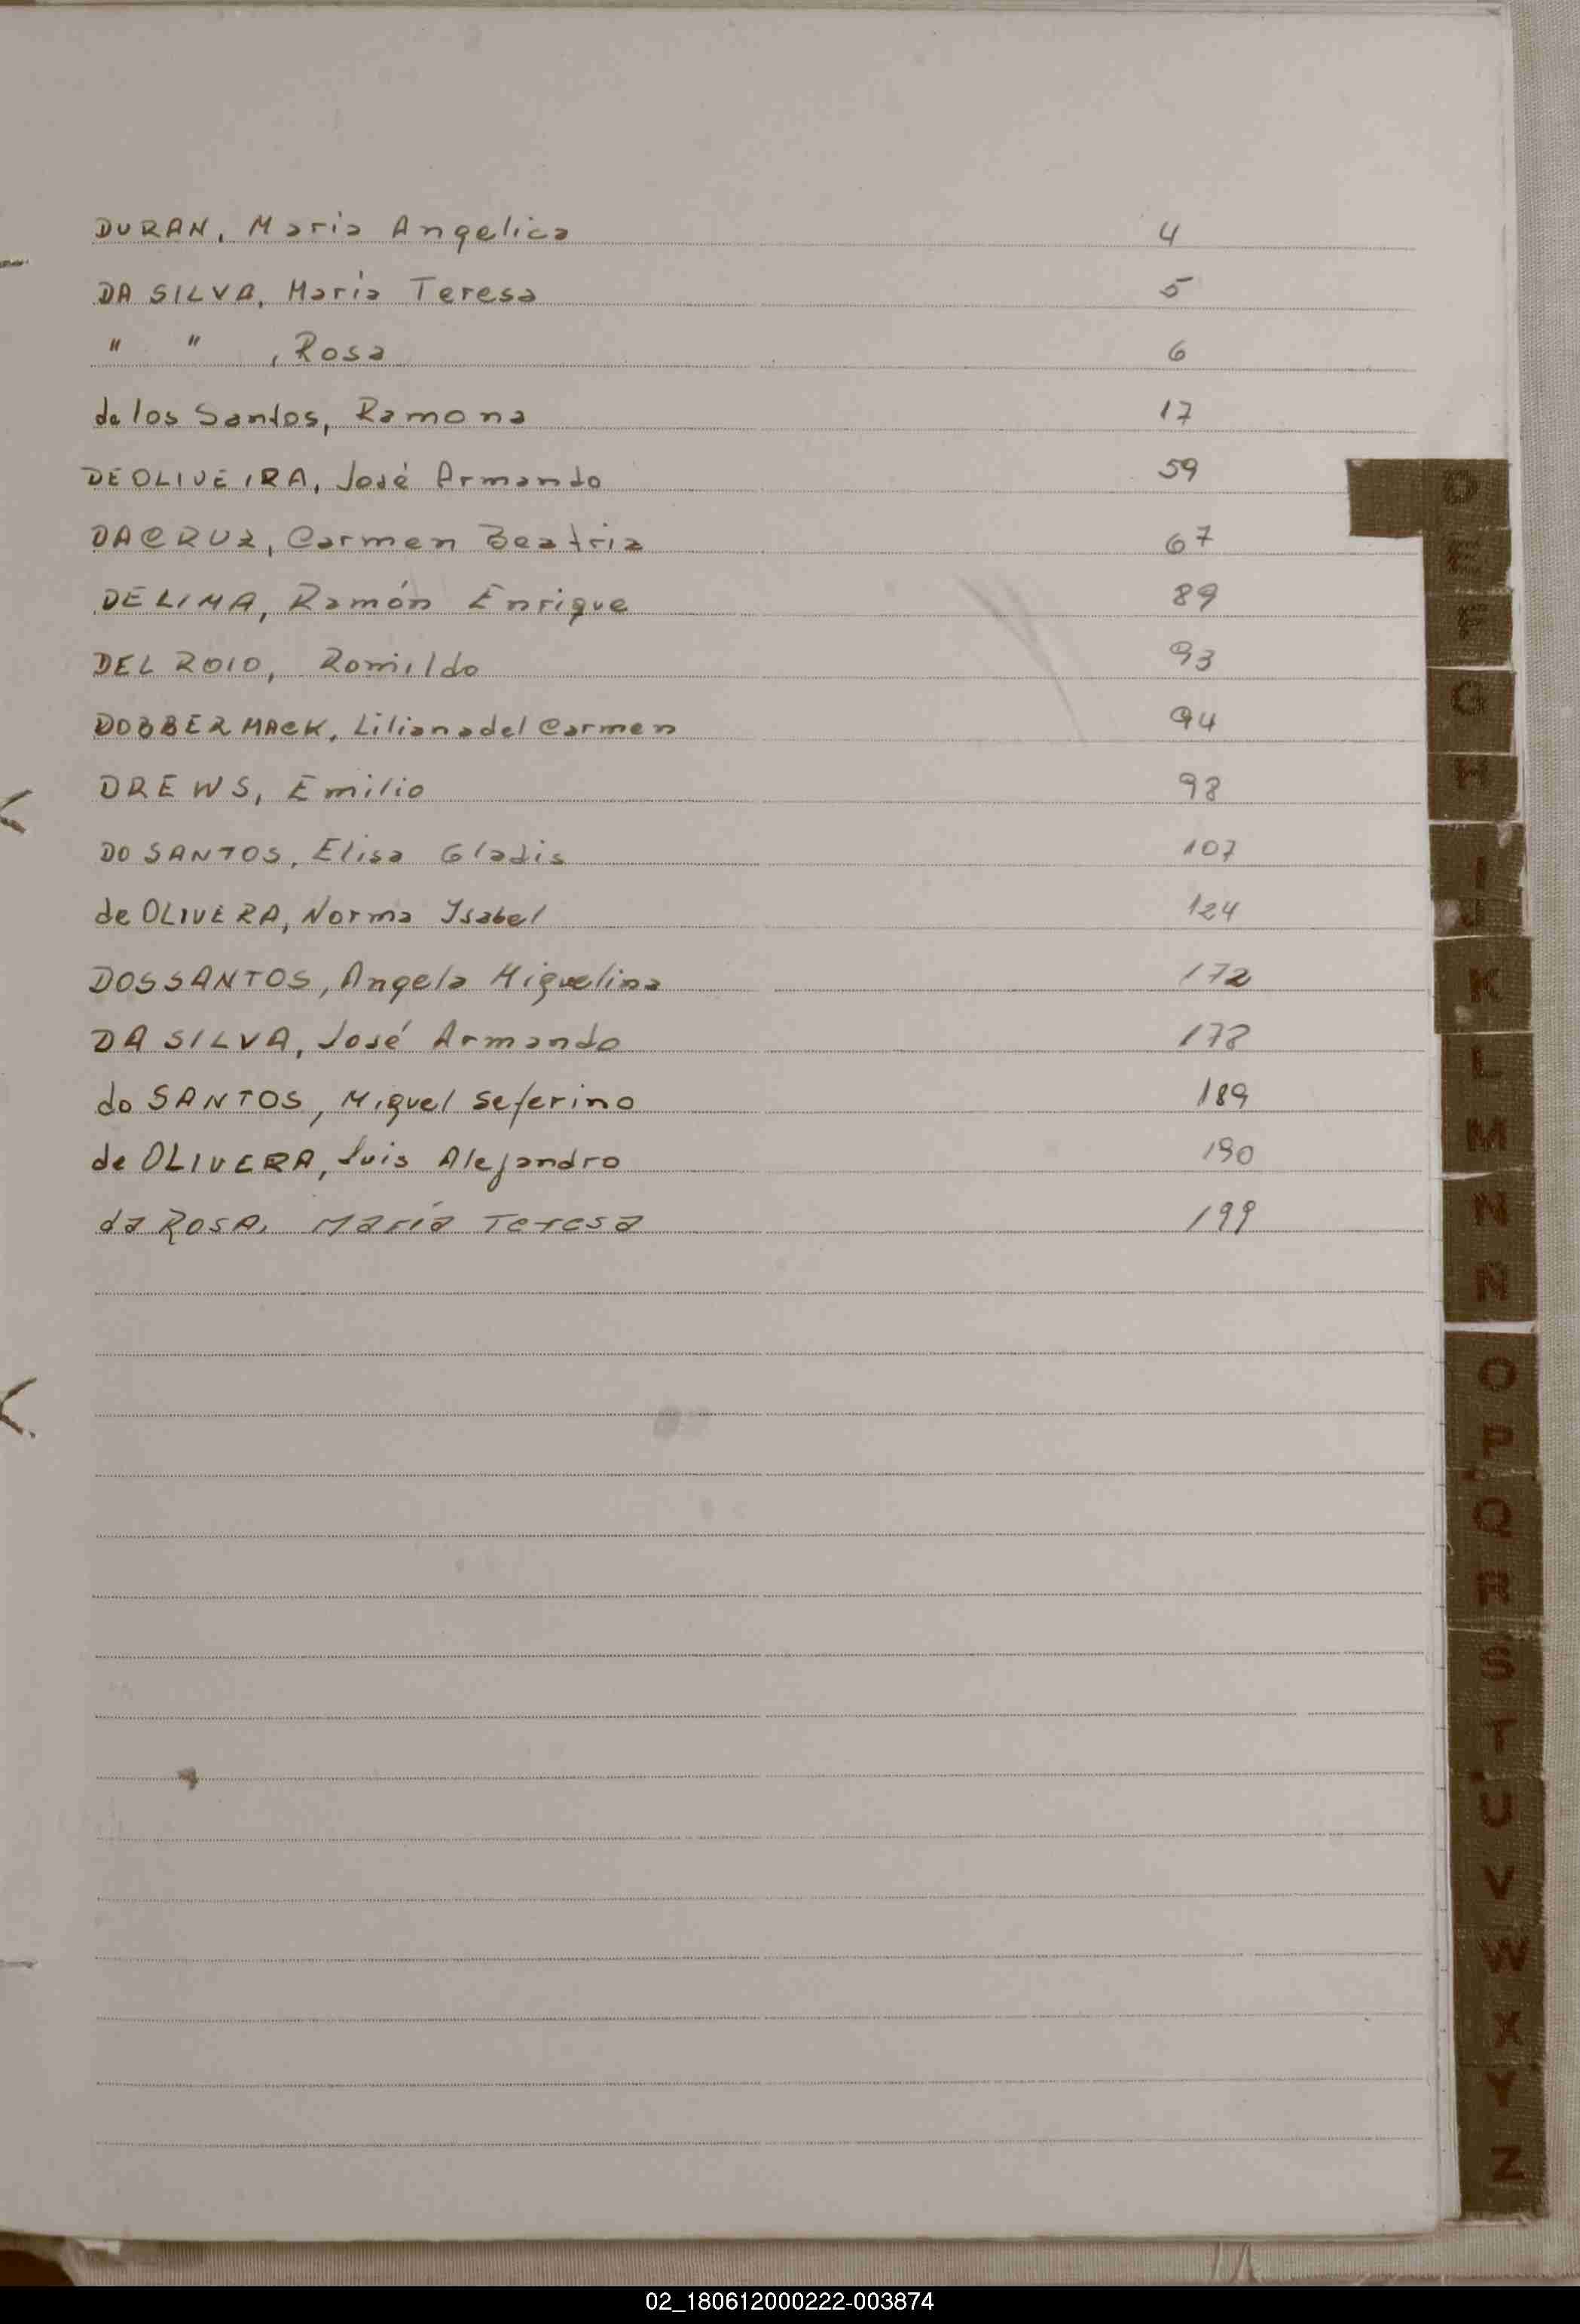 DURAN, Maria Angelica 4
DA SILVA, Maria Teresa 5
" " , Rosa 6
de los Santos, Ramona 17
DEOLIVEIRA, José Armando 59
DACRUZ, Carmen Beatriz 67
DELIMA, Ramón Enrique 89
DEL ROIO, Romildo 93
DOBBERMACK, Liliana del Carmen 94
DREWS, Emilio 98
DO SANTOS, Elisa Gladis 107
de OLIVERA, Norma Ysabel 124
DOSSANTOS, Angela Miguelina 172
DA SILVA, José Armando 178
do SANTOS, Miguel Seferino 189
de OLIVERA, Luis Alejandro 190
da ROSA, María Teresa 199
D
E
F
G
H
I
J
K
L
M
N
Ñ
O
P
Q
R
S
T
U
V
W
X
Y
Z
02_180612000222-003874